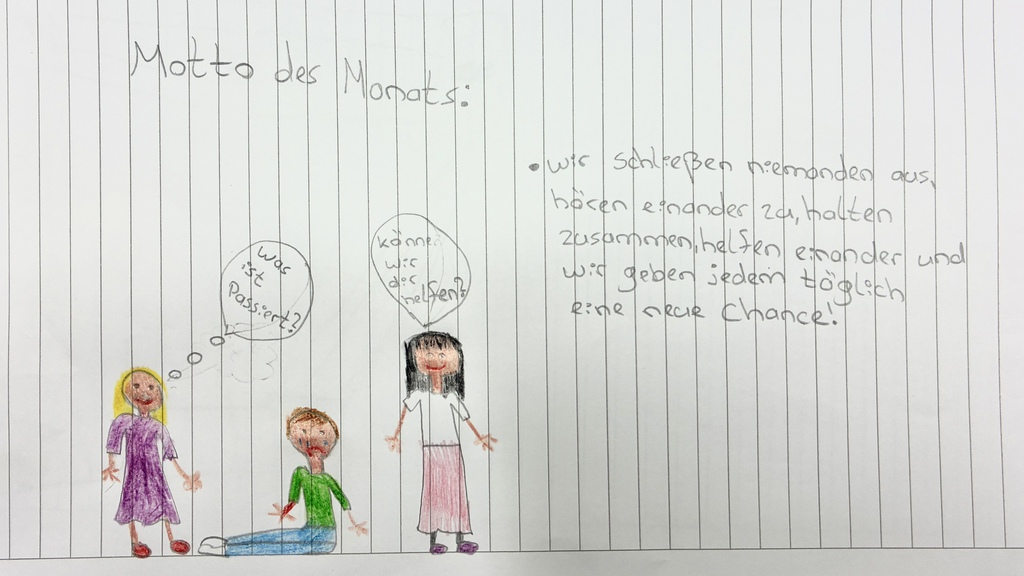 Motto des Monats:
was
ist
Passiert?
könne
wir
dir
helfen?
• wir schließen niemanden aus,
hören einander zu, halten
zusammen, helfen einander und
wir geben jedem täglich
eine neue Chance!